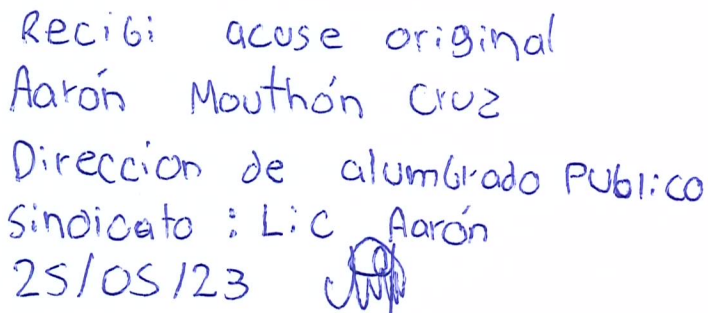 Recibi acuse original
Aarón Mouthón Cruz
Direccion de alumbrado Publico
Sindicato : Lic Aarón
25/05/23